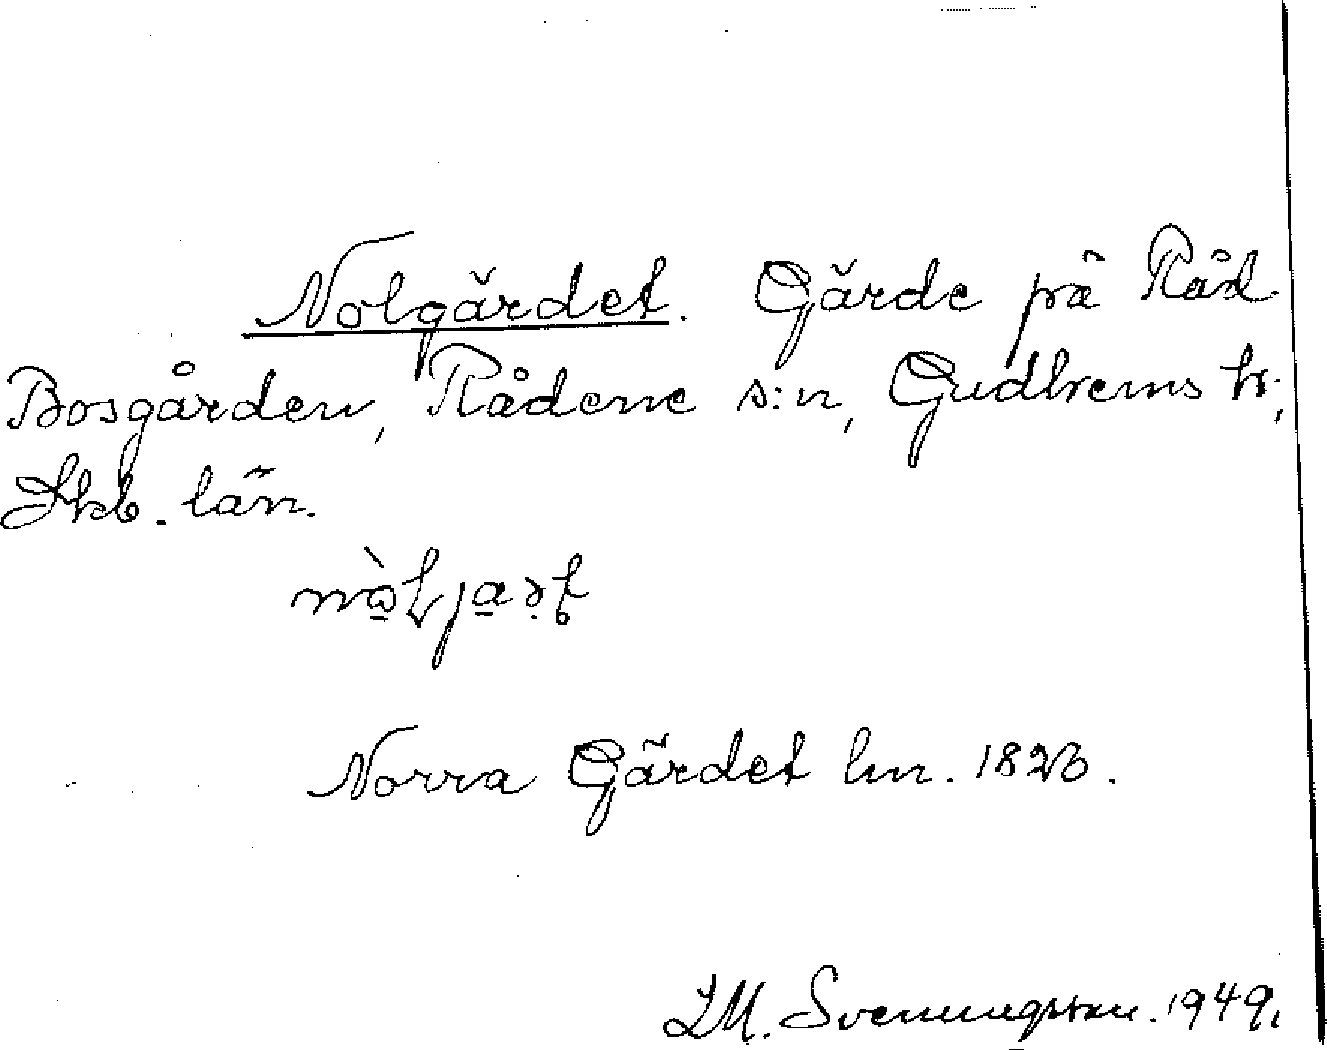 Nolgärdet. Gärde på Råd
Bosgården, Rådene s:n, Gudhems hr;
Skb. län.
Norra Gärdet hn. 1826.
I.M. Svenungsson. 1949.